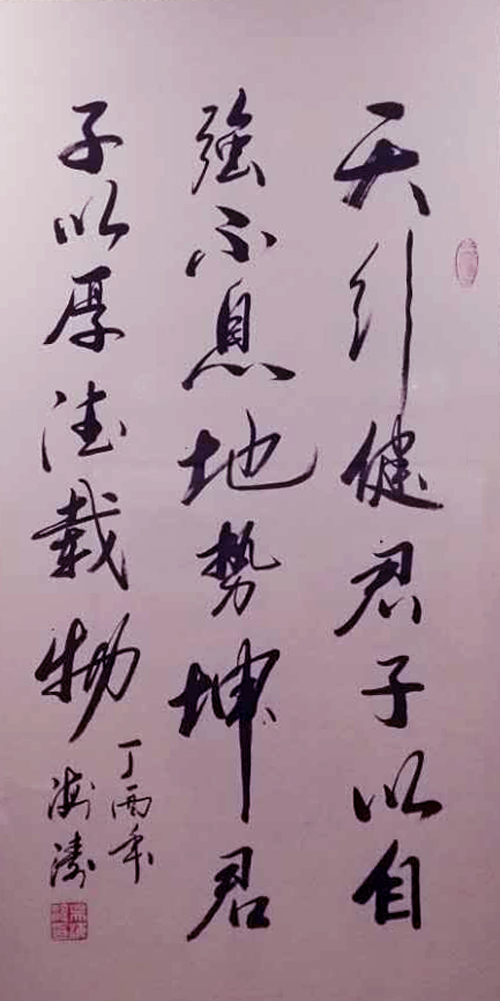 天行健君子以自
強不息地势坤君
子以厚德載物
丁酉年
海濤